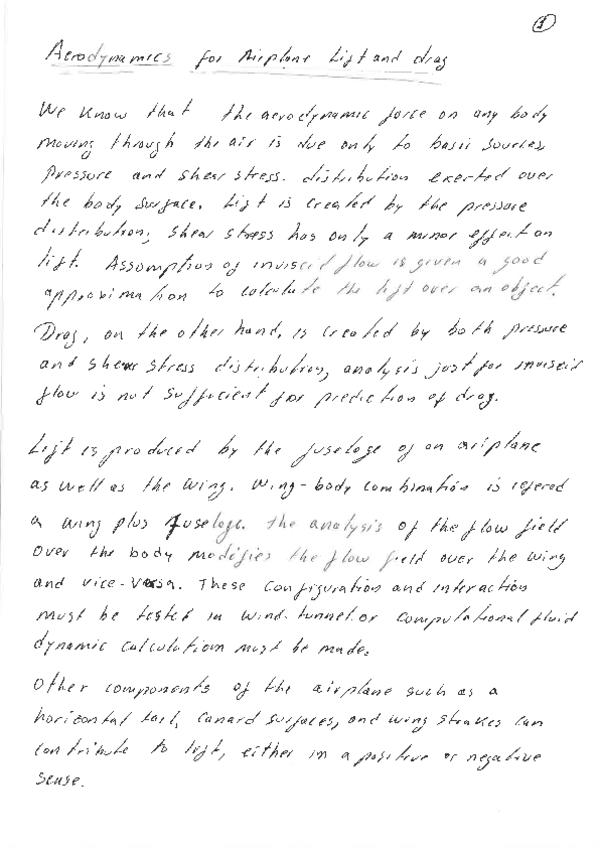 1
Aerodynamics for Airplane Lift and drag
We know that the aerodynamic force on any body
moving through the air is due only to basic sources,
pressure and shear stress. distribution exerted over
the body surface. Lift is created by the pressure
distribution; shear stress has only a minor effect on
lift. Assumption of inviscid flow is given a good
approximation to calculate the lift over an object.
Drag, on the other hand, is created by both pressure
and shear stress distribution, analysis just for inviscid
flow is not sufficient for prediction of drag.
Lift is produced by the fuseloge of an airplane
as well as the wing. Wing-body combination is refered
a wing plus fuseloge. the analysis of the flow field
over the body modifies the flow field over the wing
and vice-versa. These configuration and interaction
must be tested in wind-tunnel or computational fluid
dynamic calculation must be made.
Other components of the airplane such as a
horizontal tail, canard surfaces, and wing strakes can
contribute to lift, either in a positive or negative
sense.